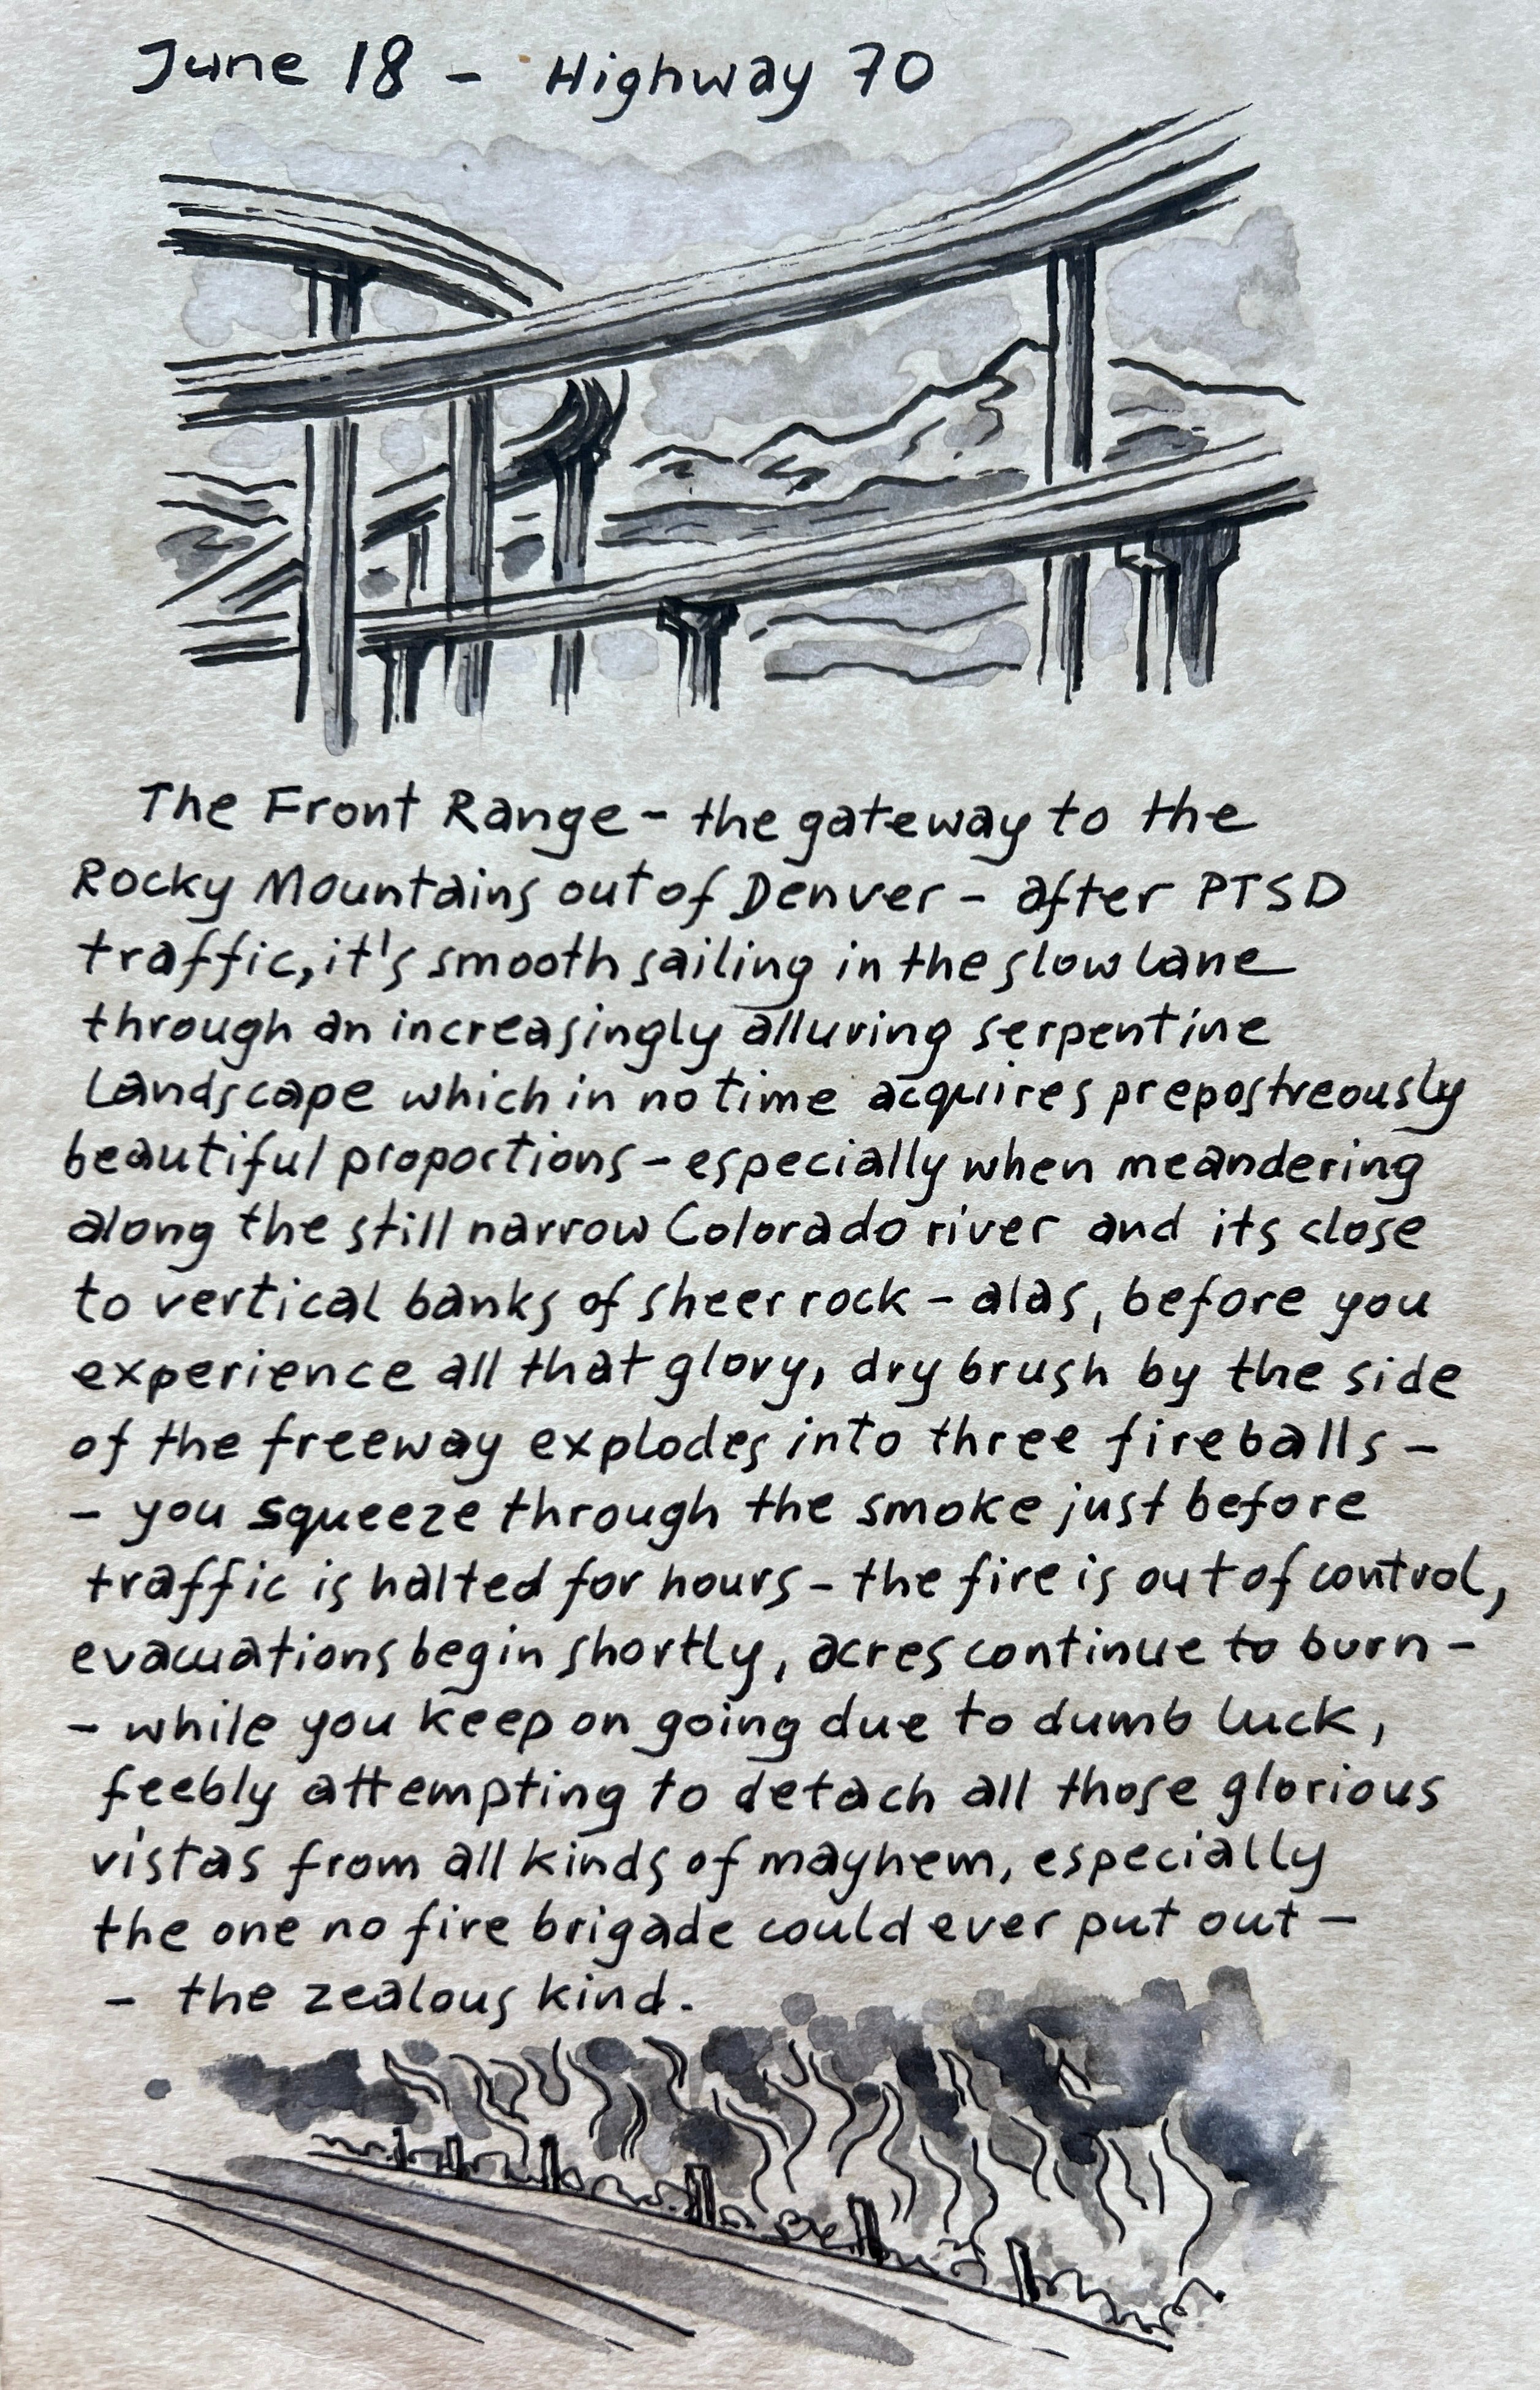 June 18 - Highway 70
The Front Range - the gateway to the
Rocky Mountains out of Denver - after PTSD
traffic, it's smooth sailing in the slow lane
through an increasingly alluring serpentine
landscape which in no time acquires prepostreously
beautiful proportions - especially when meandering
along the still narrow Colorado river and its close
to vertical banks of sheer rock - alas, before you
experience all that glory, dry brush by the side
of the freeway explodes into three fireballs -
- you squeeze through the smoke just before
traffic is halted for hours - the fire is out of control,
evacuations begin shortly, acres continue to burn -
- while you keep on going due to dumb luck,
feebly attempting to detach all those glorious
vistas from all kinds of mayhem, especially
the one no fire brigade could ever put out -
- the zealous kind.